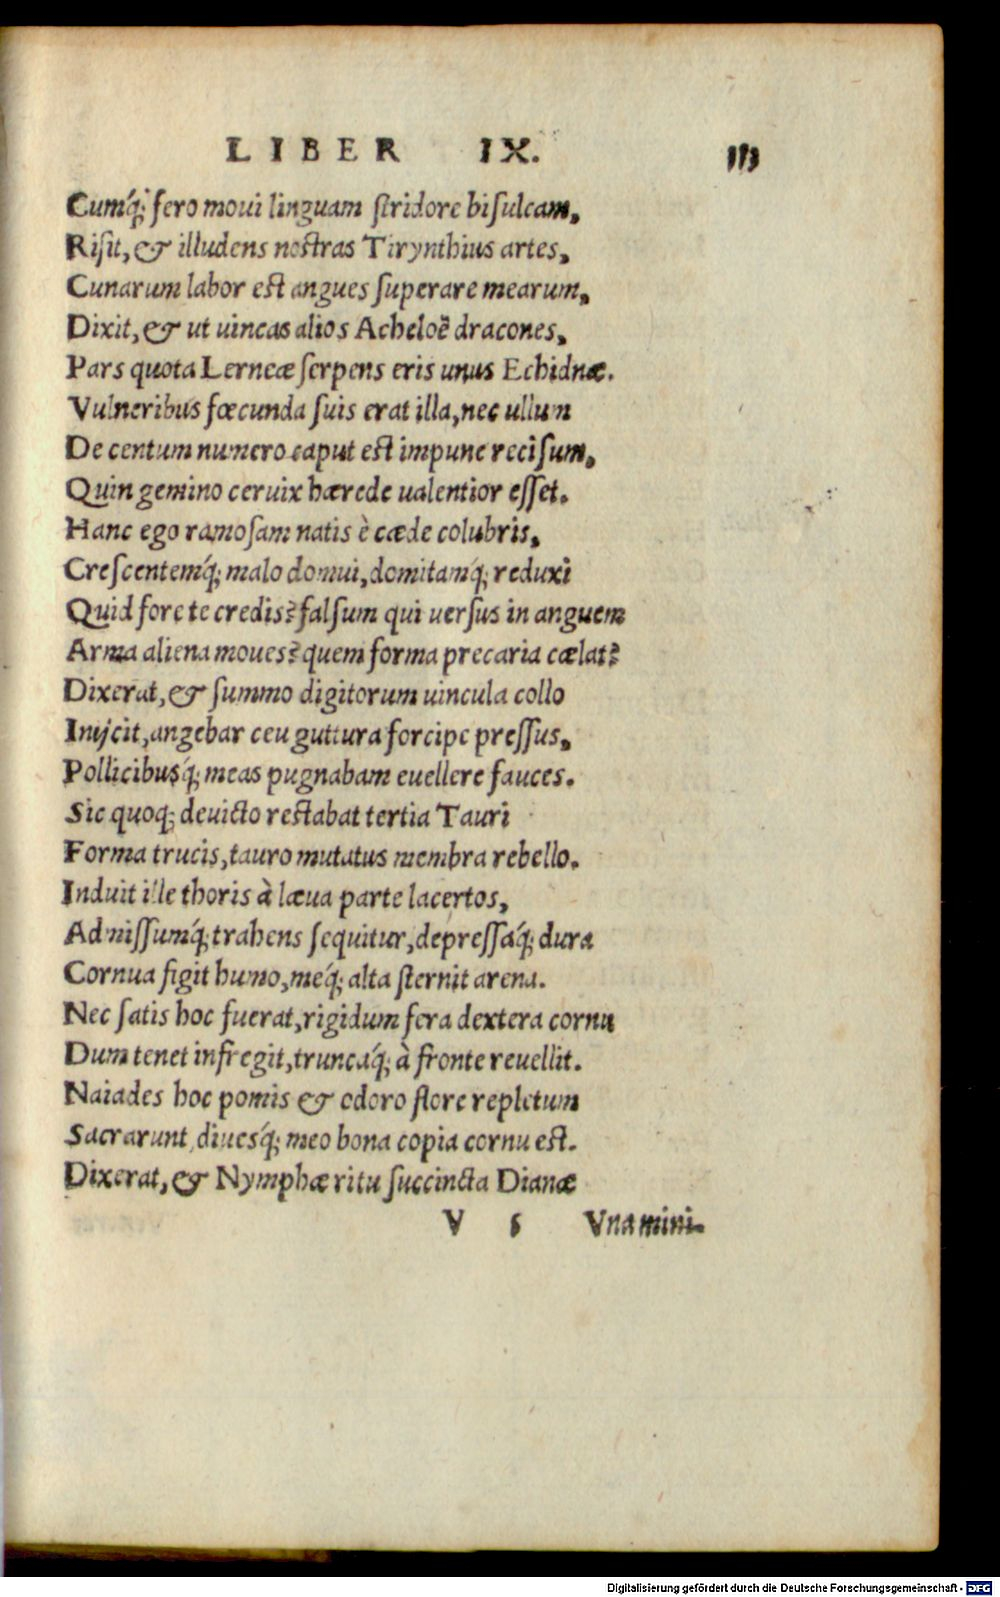 LIBER IX.
Cumq́; fero moui linguam stridore bisulcam,
Risit, & illudens nostras Tirynthius artes,
Cunarum labor est angues superare mearum,
Dixit, & ut uincas alios Acheloë dracones,
Pars quota Lerneæ serpens eris unus Echidnæ.
Vulneribus fœcunda suis erat illa, nec ullum
De centum numero caput est impune recisum,
Quin gemino ceruix hærede ualentior esset.
Hanc ego ramosam natis è cæde colubris,
Crescentemq́; malo domui, domitamq́; reduxi
Quid fore te credis? falsum qui uersus in anguem
Arma aliena moues? quem forma precaria cælat?
Dixerat, & summo digitorum uincula collo
Inijcit, angebar ceu guttura forcipe pressus,
Pollicibusq́; meas pugnabam euellere fauces.
Sic quoq; deuicto restabat tertia Tauri
Forma trucis, tauro mutatus membra rebello.
Induit ille thoris à læua parte lacertos,
Admissumq́; trahens sequitur, depressaq́; dura
Cornua figit humo, meq́; alta sternit arena.
Nec satis hoc fuerat, rigidum fera dextera cornu
Dum tenet infregit, truncaq́; à fronte reuellit.
Naiades hoc pomis & odoro flore repletum
Sacrarunt, diuesq́; meo bona copia cornu est.
Dixerat, & Nymphæ ritu succincta Dianæ
V 5 Vnamini-
Digitalisierung gefördert durch die Deutsche Forschungsgemeinschaft - DFG